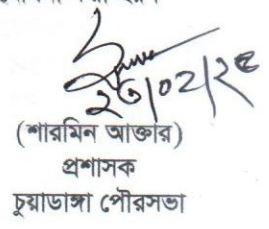 ২৩/০২/২৫
(শারমিন আক্তার)
প্রশাসক
চুয়াডাঙ্গা পৌরসভা